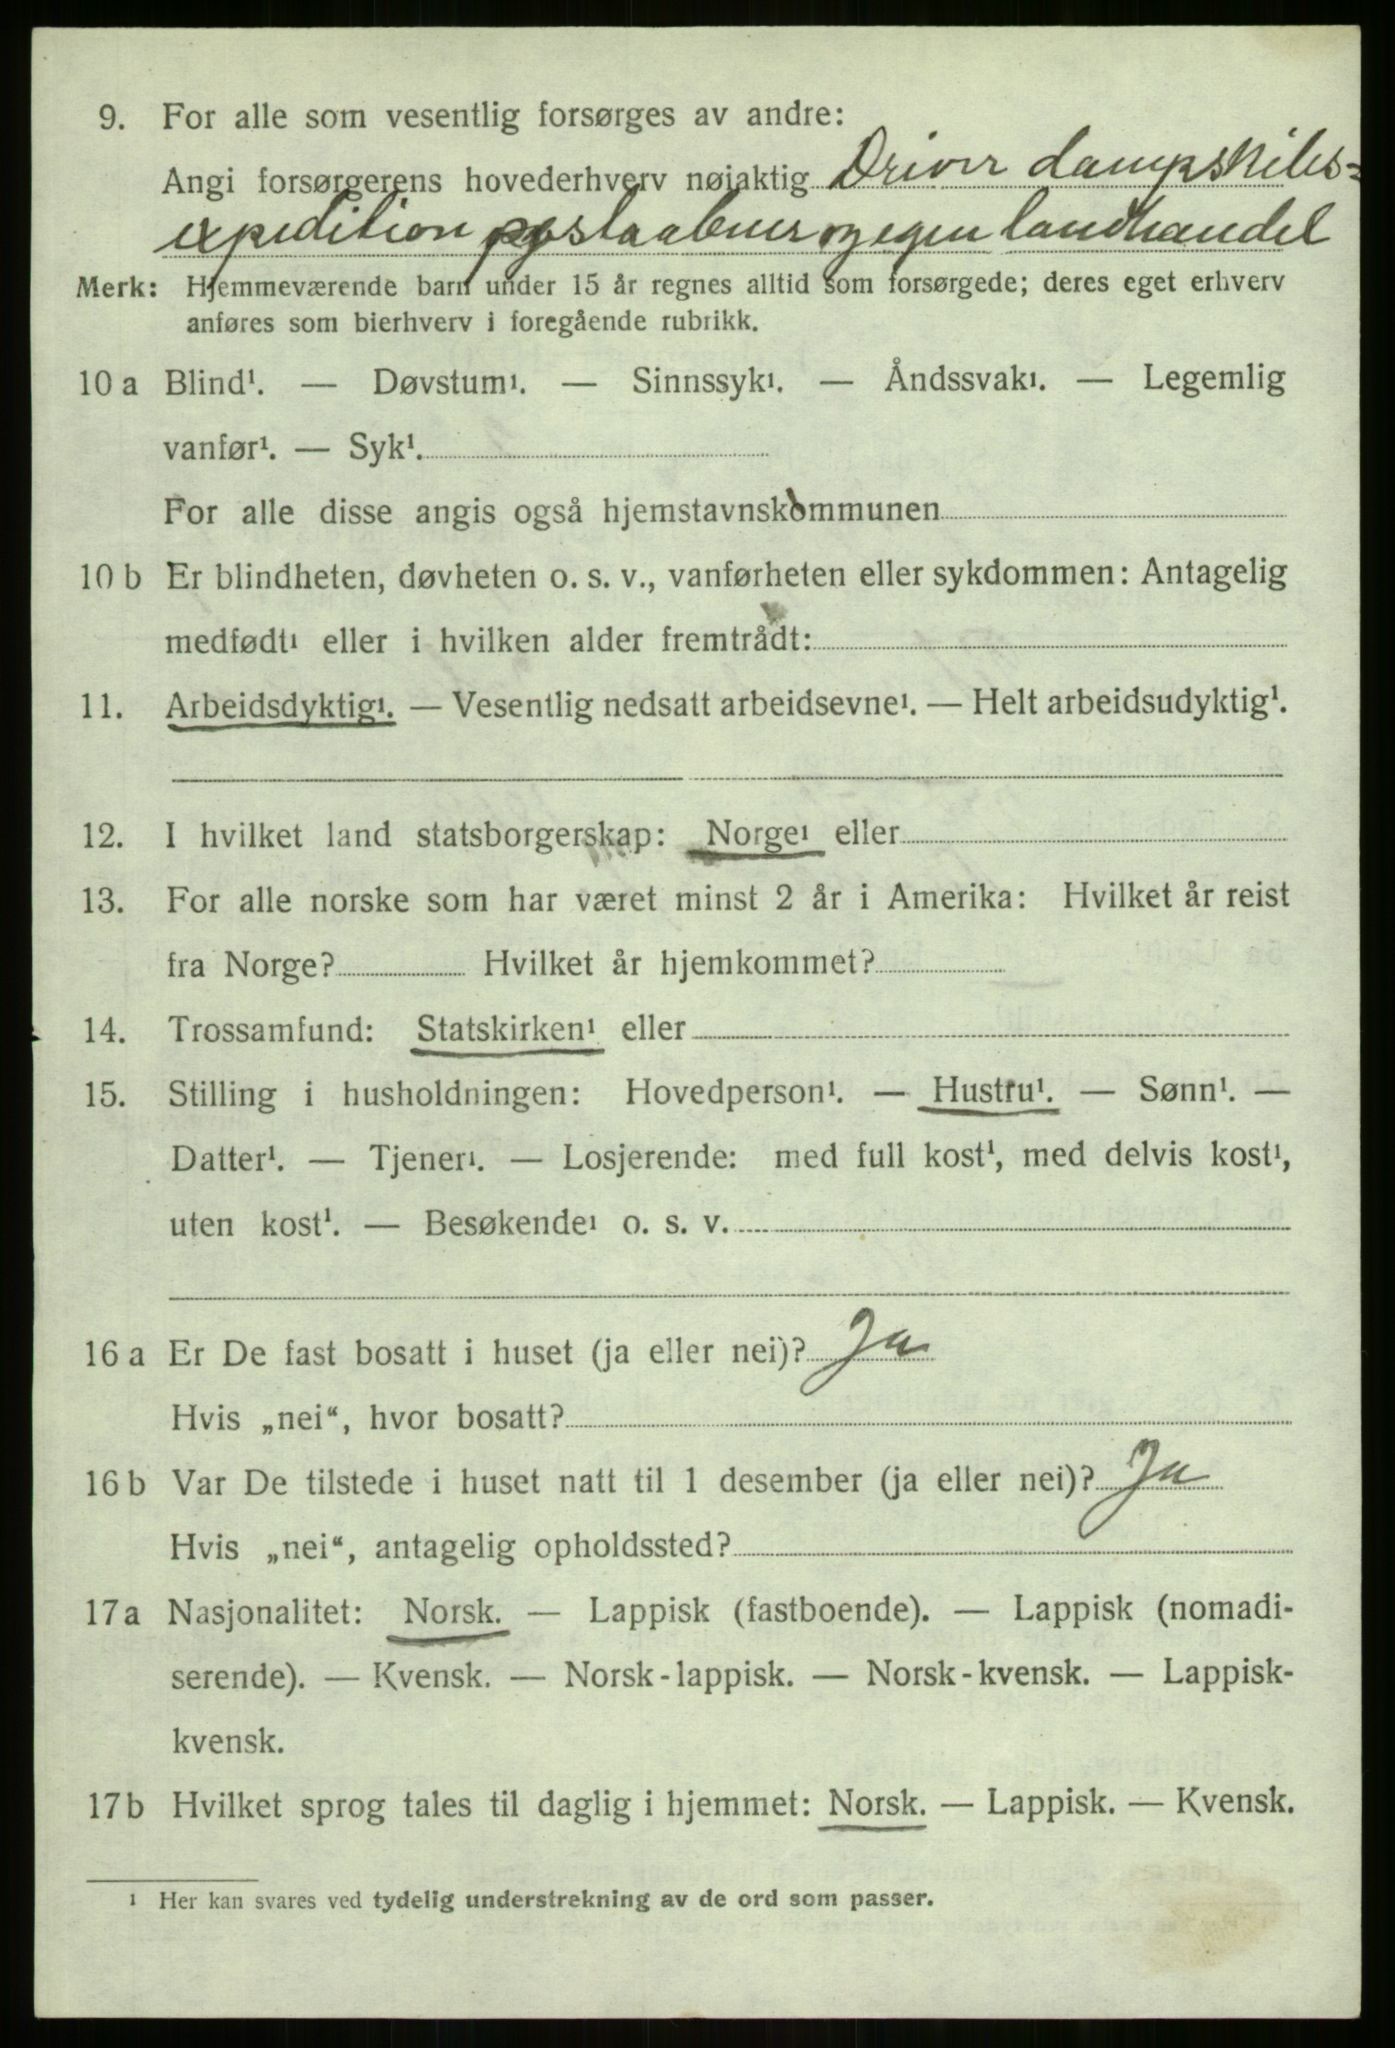 9. For alle som vesentlig forsørges av andre:
Angi forsørgerens hovederhverv nøiaktig Driver dampskibs-
expedition postaabner og egen landhandel
Merk: Hjemmeværende barn under 15 år regnes alltid som forsørgede; deres eget erhverv
anføres som bierhverv i foregående rubrikk.
10 a Blind¹. — Døvstum¹. — Sinnssyk¹. — Åndssvak¹. — Legemlig
vanfør¹. — Syk¹.
For alle disse angis også hjemstavnskommunen
10 b Er blindheten, døvheten o. s. v., vanførheten eller sykdommen: Antagelig
medfødt¹ eller i hvilken alder fremtrådt:
11. Arbeidsdyktig¹. — Vesentlig nedsatt arbeidsevne¹. — Helt arbeidsudyktig¹.
12. I hvilket land statsborgerskap: Norge¹ eller
13. For alle norske som har været minst 2 år i Amerika: Hvilket år reist
fra Norge? Hvilket år hjemkommet?
14. Trossamfund: Statskirken¹ eller
15. Stilling i husholdningen: Hovedperson¹. — Hustru¹. — Sønn¹. —
Datter¹. — Tjener¹. — Losjerende: med full kost¹, med delvis kost¹,
uten kost¹. — Besøkende¹ o. s. v.
16 a Er De fast bosatt i huset (ja eller nei)? Ja
Hvis „nei“, hvor bosatt?
16 b Var De tilstede i huset natt til 1 desember (ja eller nei)? Ja
Hvis „nei“, antagelig opholdssted?
17 a Nasjonalitet: Norsk. — Lappisk (fastboende). — Lappisk (nomadi-
serende). — Kvensk. — Norsk-lappisk. — Norsk-kvensk. — Lappisk-
kvensk.
17 b Hvilket sprog tales til daglig i hjemmet: Norsk. — Lappisk. — Kvensk.
¹ Her kan svares ved tydelig understrekning av de ord som passer.